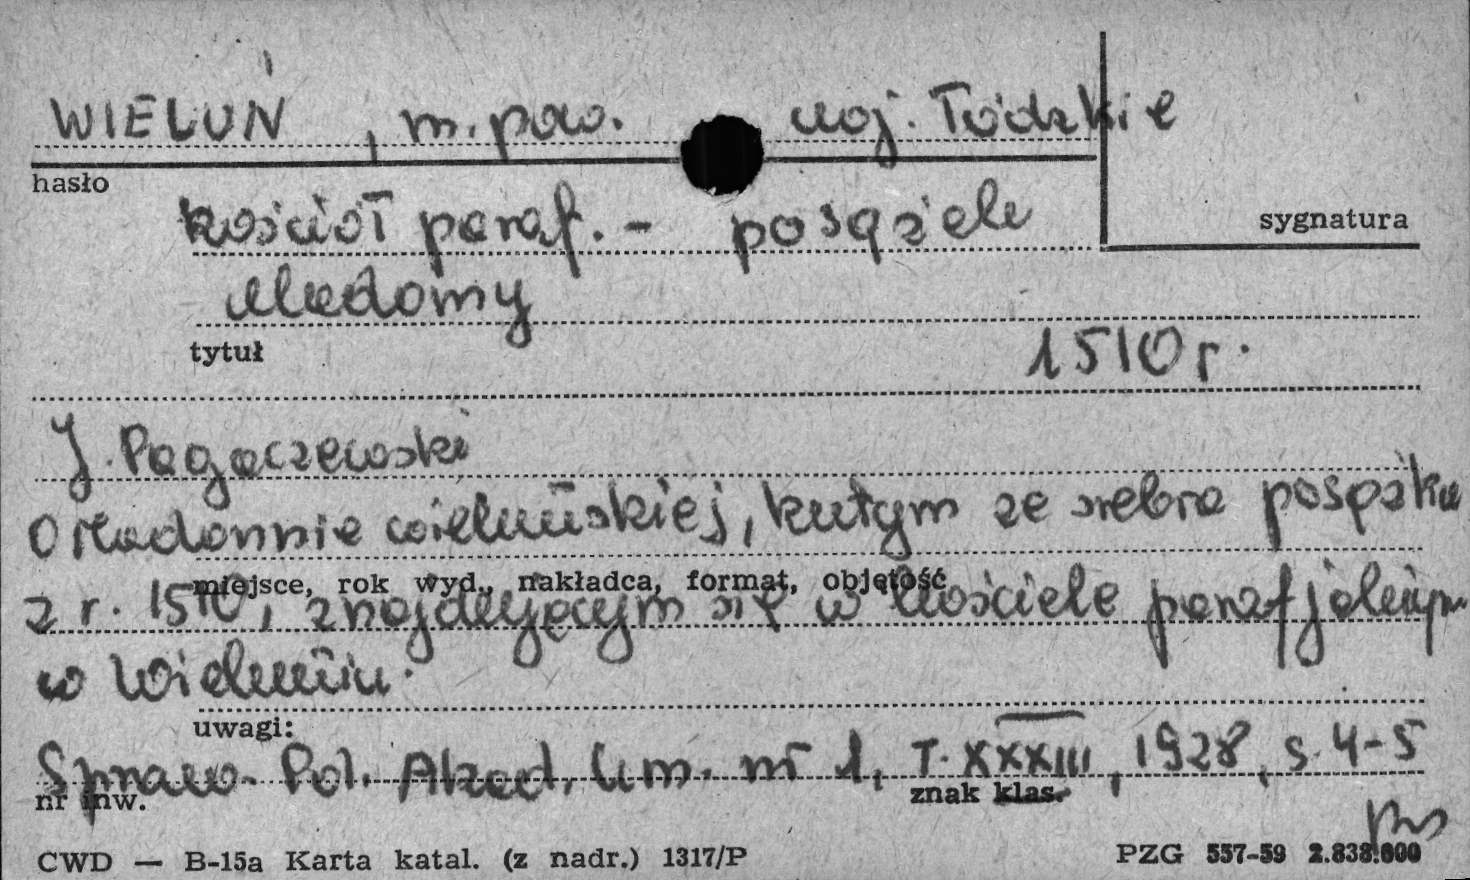 WIELUŃ, m. pow. woj. Łódzkie
hasło
kościół paraf. - posążek
sygnatura
Madonny
tytuł
1510 r.
J. Pagaczewski
O Madonnie wieluńskiej, kutym ze srebra posążku
miejsce, rok wyd., nakładca, format, objętość
z r. 1510, znajdującym się w kościele parafjalnym
w Wieluniu.
uwagi:
Spraw. Pol. Akad. Um. nr 1, T. XXXIII, 1928, s. 4-5
nr inw. znak klas.
CWD — B-15a Karta katal. (z nadr.) 1317/P PZG 557-59 2.838.000